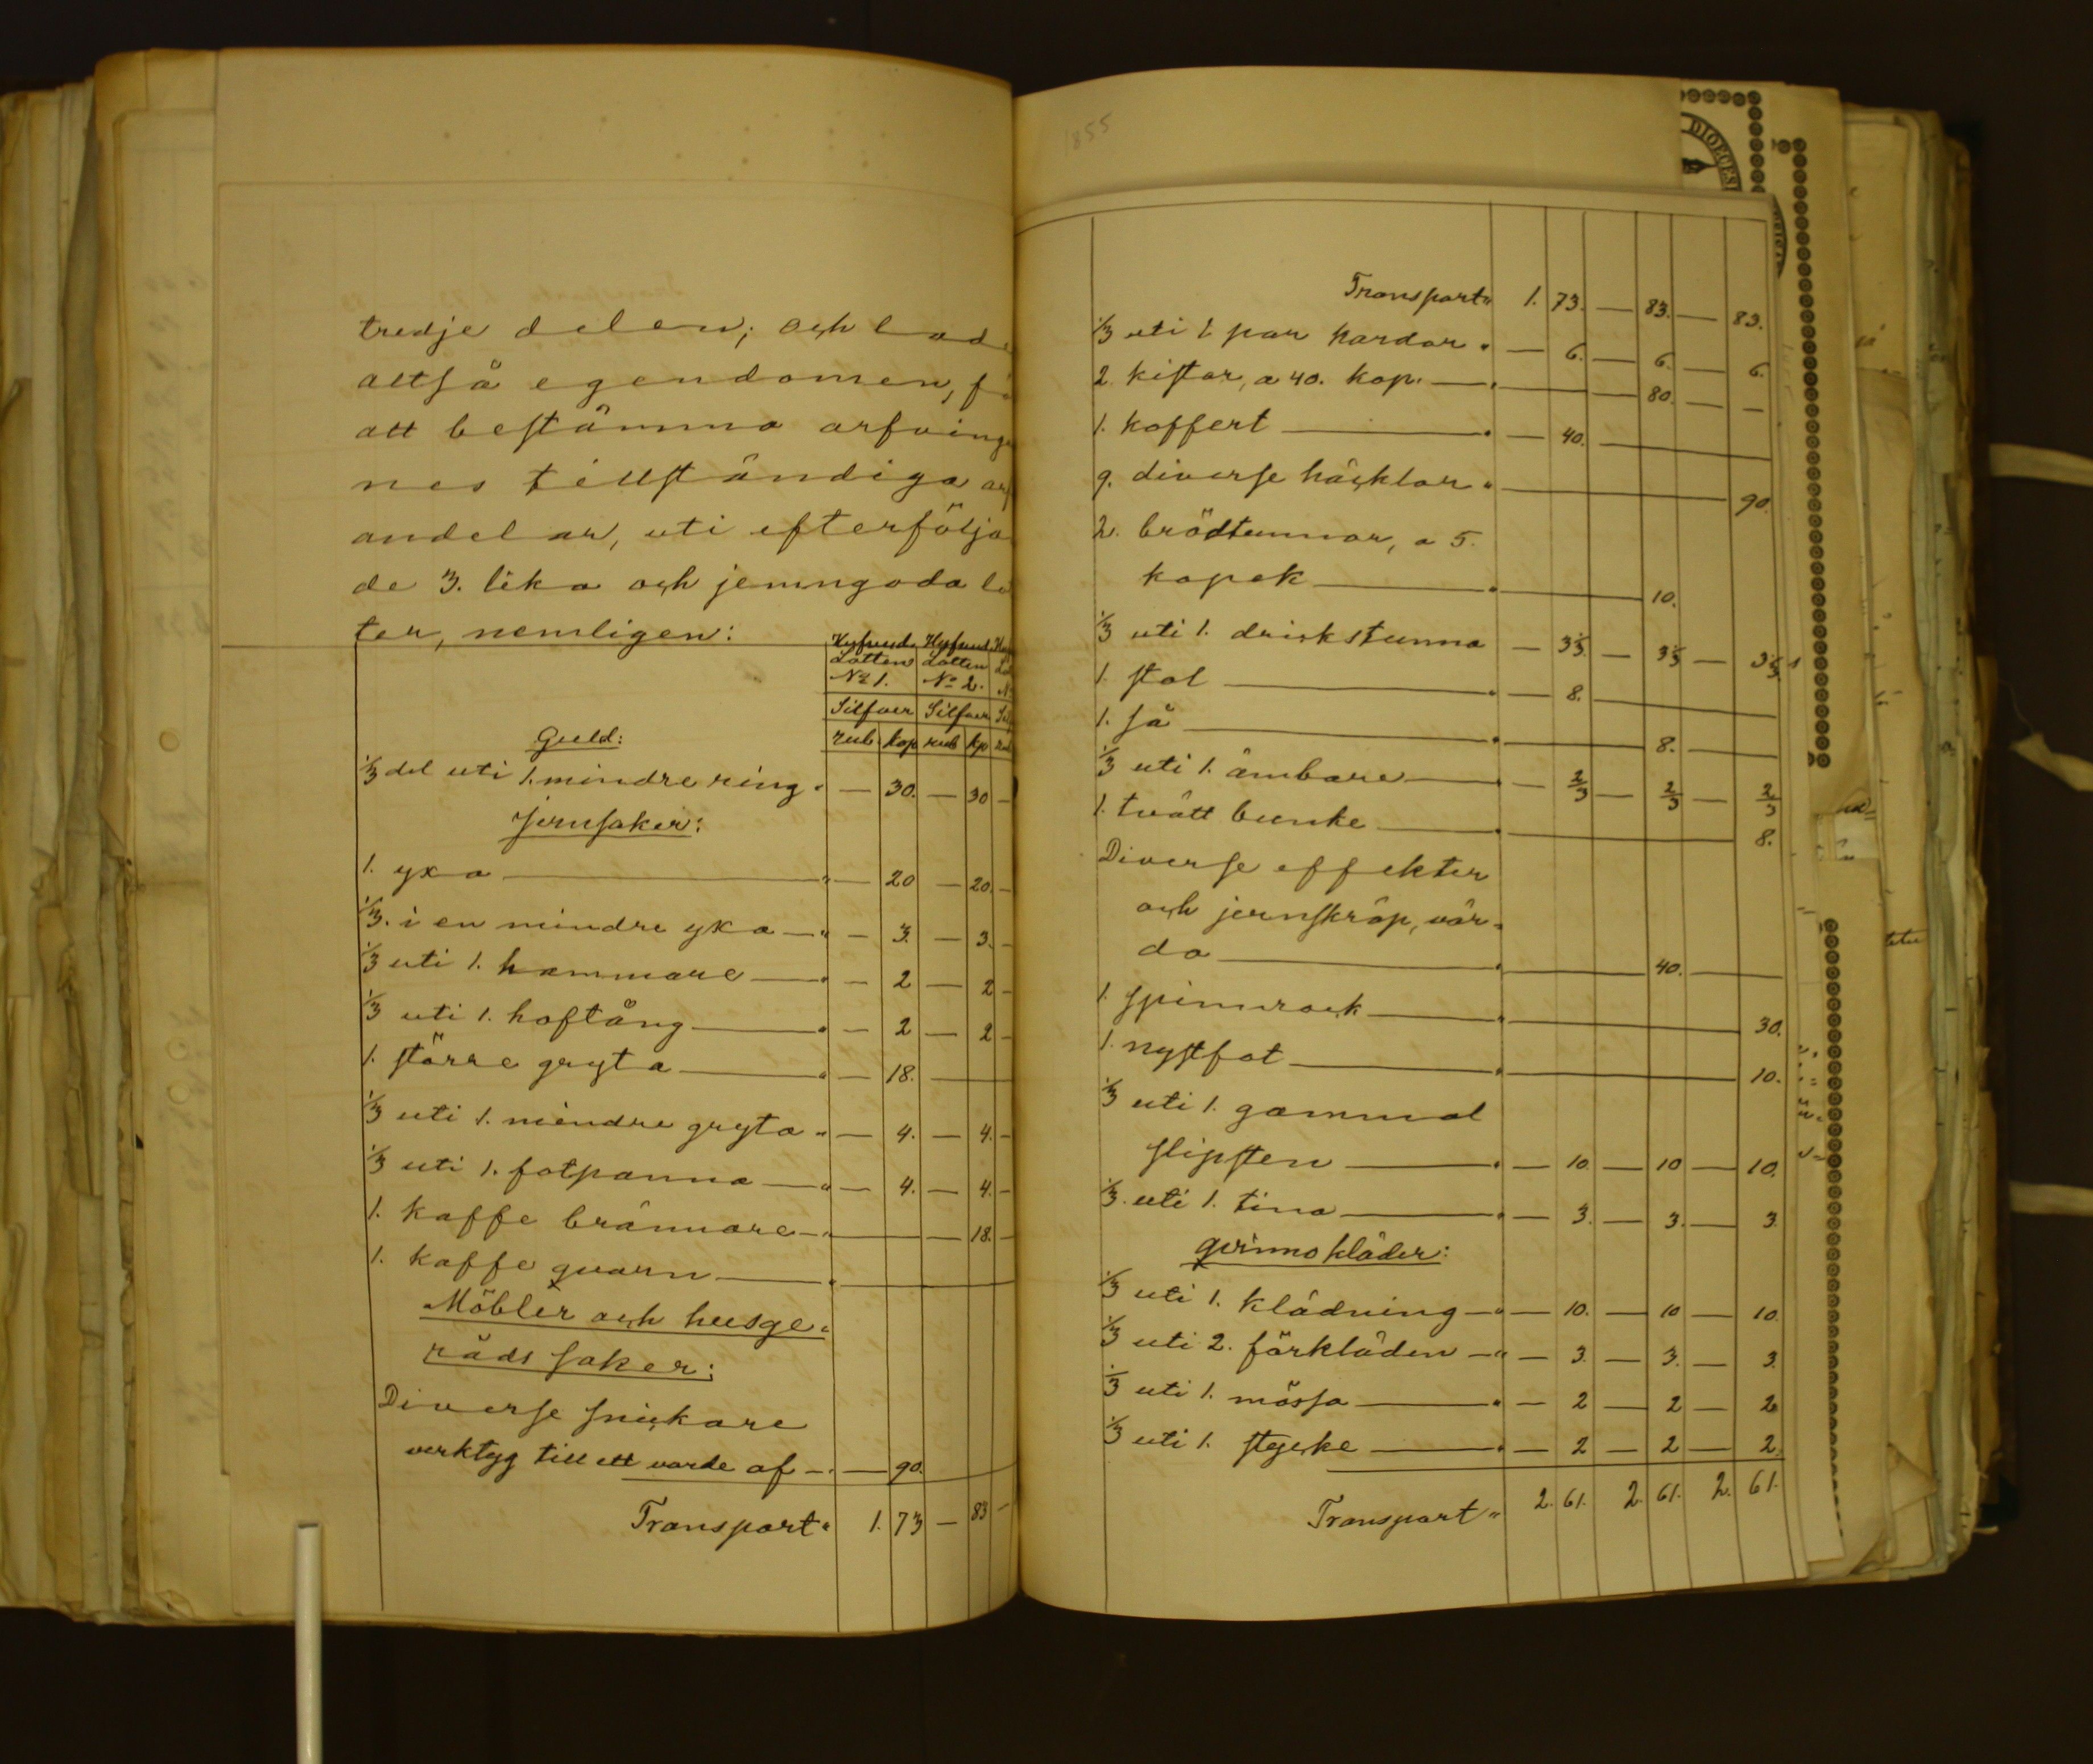 tredje delen; och lade
altså egendomen, fö
att bestämma arfvinga
nes tillständiga arf
andelar, uti efterfölja
de 3. lika och jemngoda lo
ter, nemligen:
Hufvud Hufvud
Lotten Lotten
No 1. No 2.
Silfver Silfver
rub kop rub kp
Guld:
1/3 del uti 1. mindre ring " — 30. — 30 —
Jernsaker:
1. yxa — " — 20 — 20. —
1/3. i en mindre yxa — " — 3. — 3. —
1/3 uti 1. hammare — " — 2 — 2 —
1/3 uti 1. hoftång — " — 2 — 2 —
1. större gryta — " — 18. —
1/3 uti 1. mindre gryta " — 4. — 4. —
1/3 uti 1. fotpanna — " — 4. — 4. —
1. kaffe brännare — " — 18. —
1. kaffe qvarn — " —
Möbler och husge=
råds saker:
Diverse snickare
verktyg till ett värde af — " — 90.
Transport " 1. 73 — 83 —
1855
DIOECES
Transport " 1. 73. — 83. — 83.
1/3 uti 1 par kardor " — 6. — 6. — 6.
2. kistor, a 40. kop. — " — 80. — —
1. koffert — " — 40. —
9. diverse häcklor " — 90.
2. brödtunnor, a 5.
kopek — " — 10.
1/3 uti 1. drickstunna — 3 1/3. — 3 1/3 — 3 1/3
1. stol — " — 8. —
1. så — " — 8. —
1/3 uti 1. ämbare — " — 2/3 — 2/3 — 2/3
1. tvätt bunke — " — 8.
Diverse effekter
och jernskräp, vär=
da — " — 40. —
1. spinnrock — " — 30.
1. nystfot — " — 10.
1/3 uti 1. gammal
slipsten — " — 10. — 10 — 10.
1/3. uti 1. tina — " — 3. — 3. — 3.
qvinno kläder:
1/3 uti 1. klädning — " — 10. — 10 — 10.
1/3 uti 2. förkläden — " — 3. — 3. — 3.
1/3 uti 1. mössa — " — 2 — 2 — 2
1/3 uti 1. stycke — " — 2 — 2 — 2.
Transport " 2. 61. 2. 61. 2. 61.